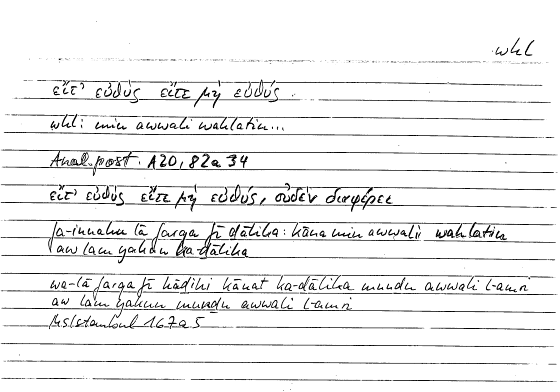 whl
εἴτ' εὐθύς εἴτε μὴ εὐθύς
whl: min awwali wahlatin...
Anal. post. A20, 82a 34
εἴτ' εὐθύς εἴτε μὴ εὐθύς, οὐδὲν διαφέρει
fa-innahu lā farqa fī ḏālika: kāna min awwali wahlatin
aw lam yakun ka-ḏālika
wa-lā farqa fī hāḏihi kānat ka-ḏālika munḏu awwali l-amri
aw lam yakun munḏu awwali l-amri
Ms Istanbul 167a5